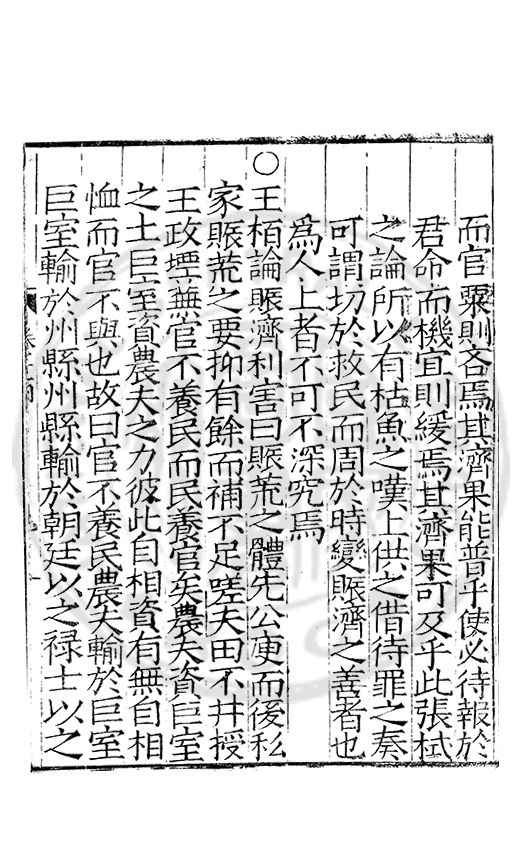 而官粟則吝焉其濟果能普乎使必待報於
君命而機宜則緩焉其濟果可及乎此張栻
之論所以有枯魚之嘆上供之借待罪之奏
可謂切於救民而周於時變賑濟之善者也
爲人上者不可不深究焉
○
王栢論賑濟利害曰賑荒之體先公庾而後私
家賑荒之要抑有餘而補不足嗟夫田不井授
王政堙蕪官不養民而民養官矣農夫資巨室
之土巨室資農夫之力彼此自相資有無自相
恤而官不與也故曰官不養民農夫輸於巨室
巨室輸於州縣州縣輸於朝廷以之禄士以之